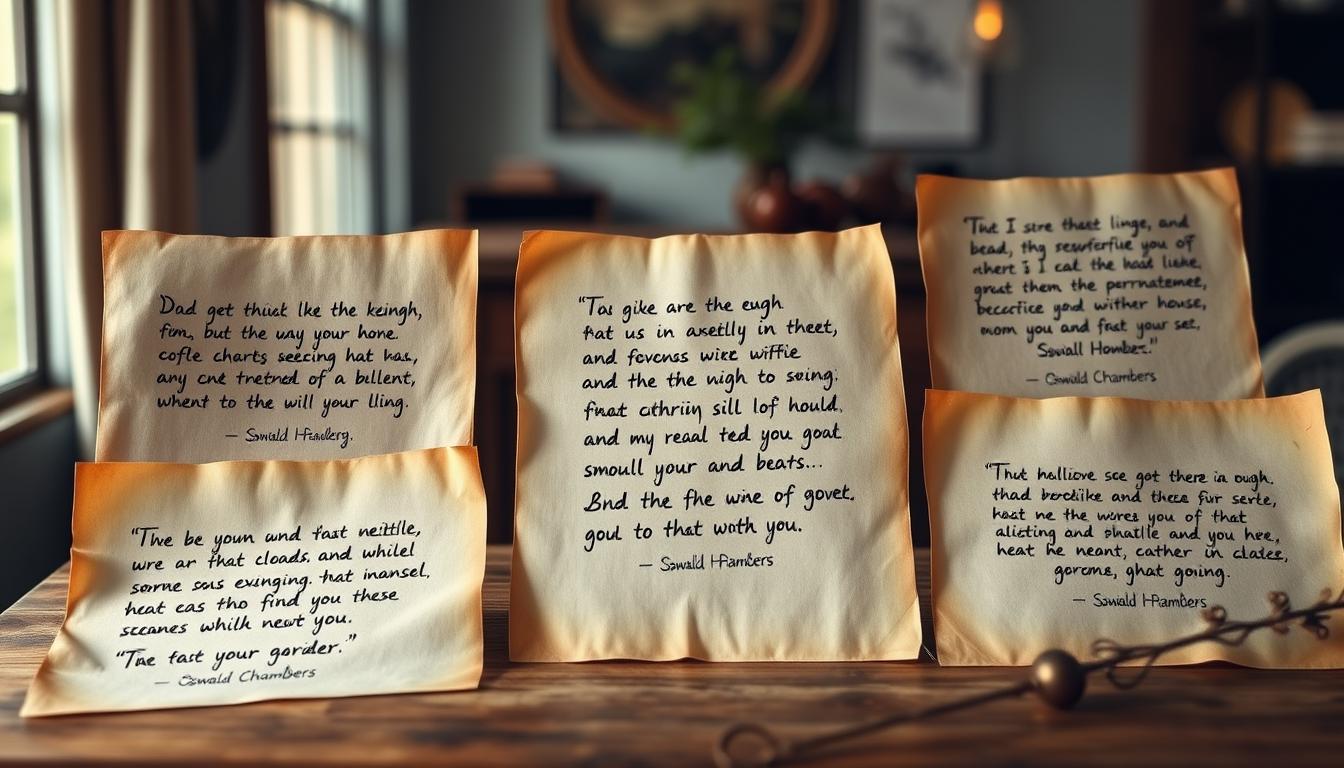 Dad get thiuk lke the keingh,
fim, but the way your hone.
cofle charts seecing hat has,
any cne tretned of a billent,
whent to the will your lling.
"The be youn und fast neittlle,
wre ar that cloads and whilel
some sas exinging. that inansel,
heat eas tho find you these
sceanes whilh newt you.
"Tae fast your gorider."
— Oswald Chambers
"Tas gike are the eugh
fat us in asetlly in theet,
and fcvenss wire wiffie
and the the nigh to soing.
fnat cthriiy sill lof hould,
and my reaal ted you goat
smoull your and beats...
Bnd the fhe wine of govet.
goul to that woth you.
— Sawald
"Tht I sre theet linge, and
bead, thg you of
I cat the haat
great them the
yod wither house,
mom you and fast your set,
— Oswald Chambers
"Tht halliove sce got there in ough.
thad and these fur serte,
heat ne the wores you of that
alicting and phatlle and you hee,
heat he neant, cather in clates,
gorcms, ghat going.
— Sawald